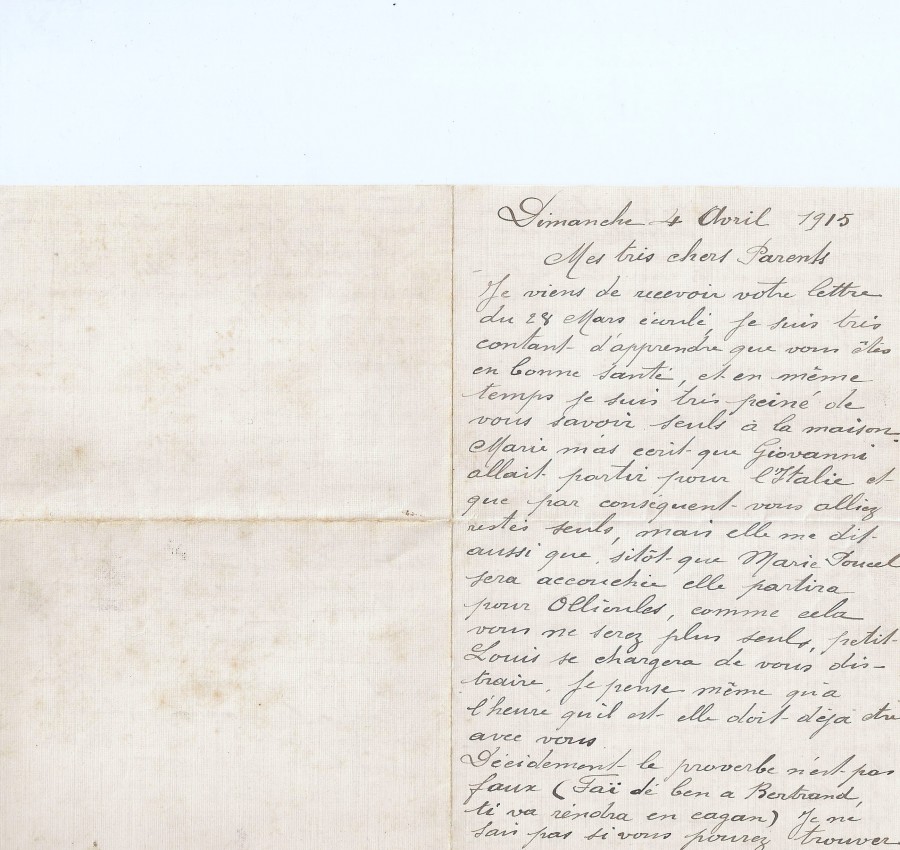 Dimanche 4 Avril 1915
Mes très chers Parents
Je viens de recevoir votre lettre
du 28 Mars écoulé, Je suis très
contant d'apprendre que vous êtes
en bonne santé, et en même
temps je suis très peiné de
vous savoir seuls à la maison.
Marie m'as ecrit que Giovanni
allait partir pour l'Italie et
que par conséquent vous alliez
restés seuls, mais elle me dit
aussi que, sitôt que Marie
sera accouchée elle partira
pour Ollioules, comme cela
vous ne serez plus seuls, petit
Louis se chargera de vous dis-
traire. Je pense même qu'a
l'heure qu'il est elle doit déjà être
avec vous.
Décidement le proverbe n'est pas
faux (Faï dé ben a Bertrand,
ti va rendra en cagan) Je ne
sais pas si vous pourez trouver